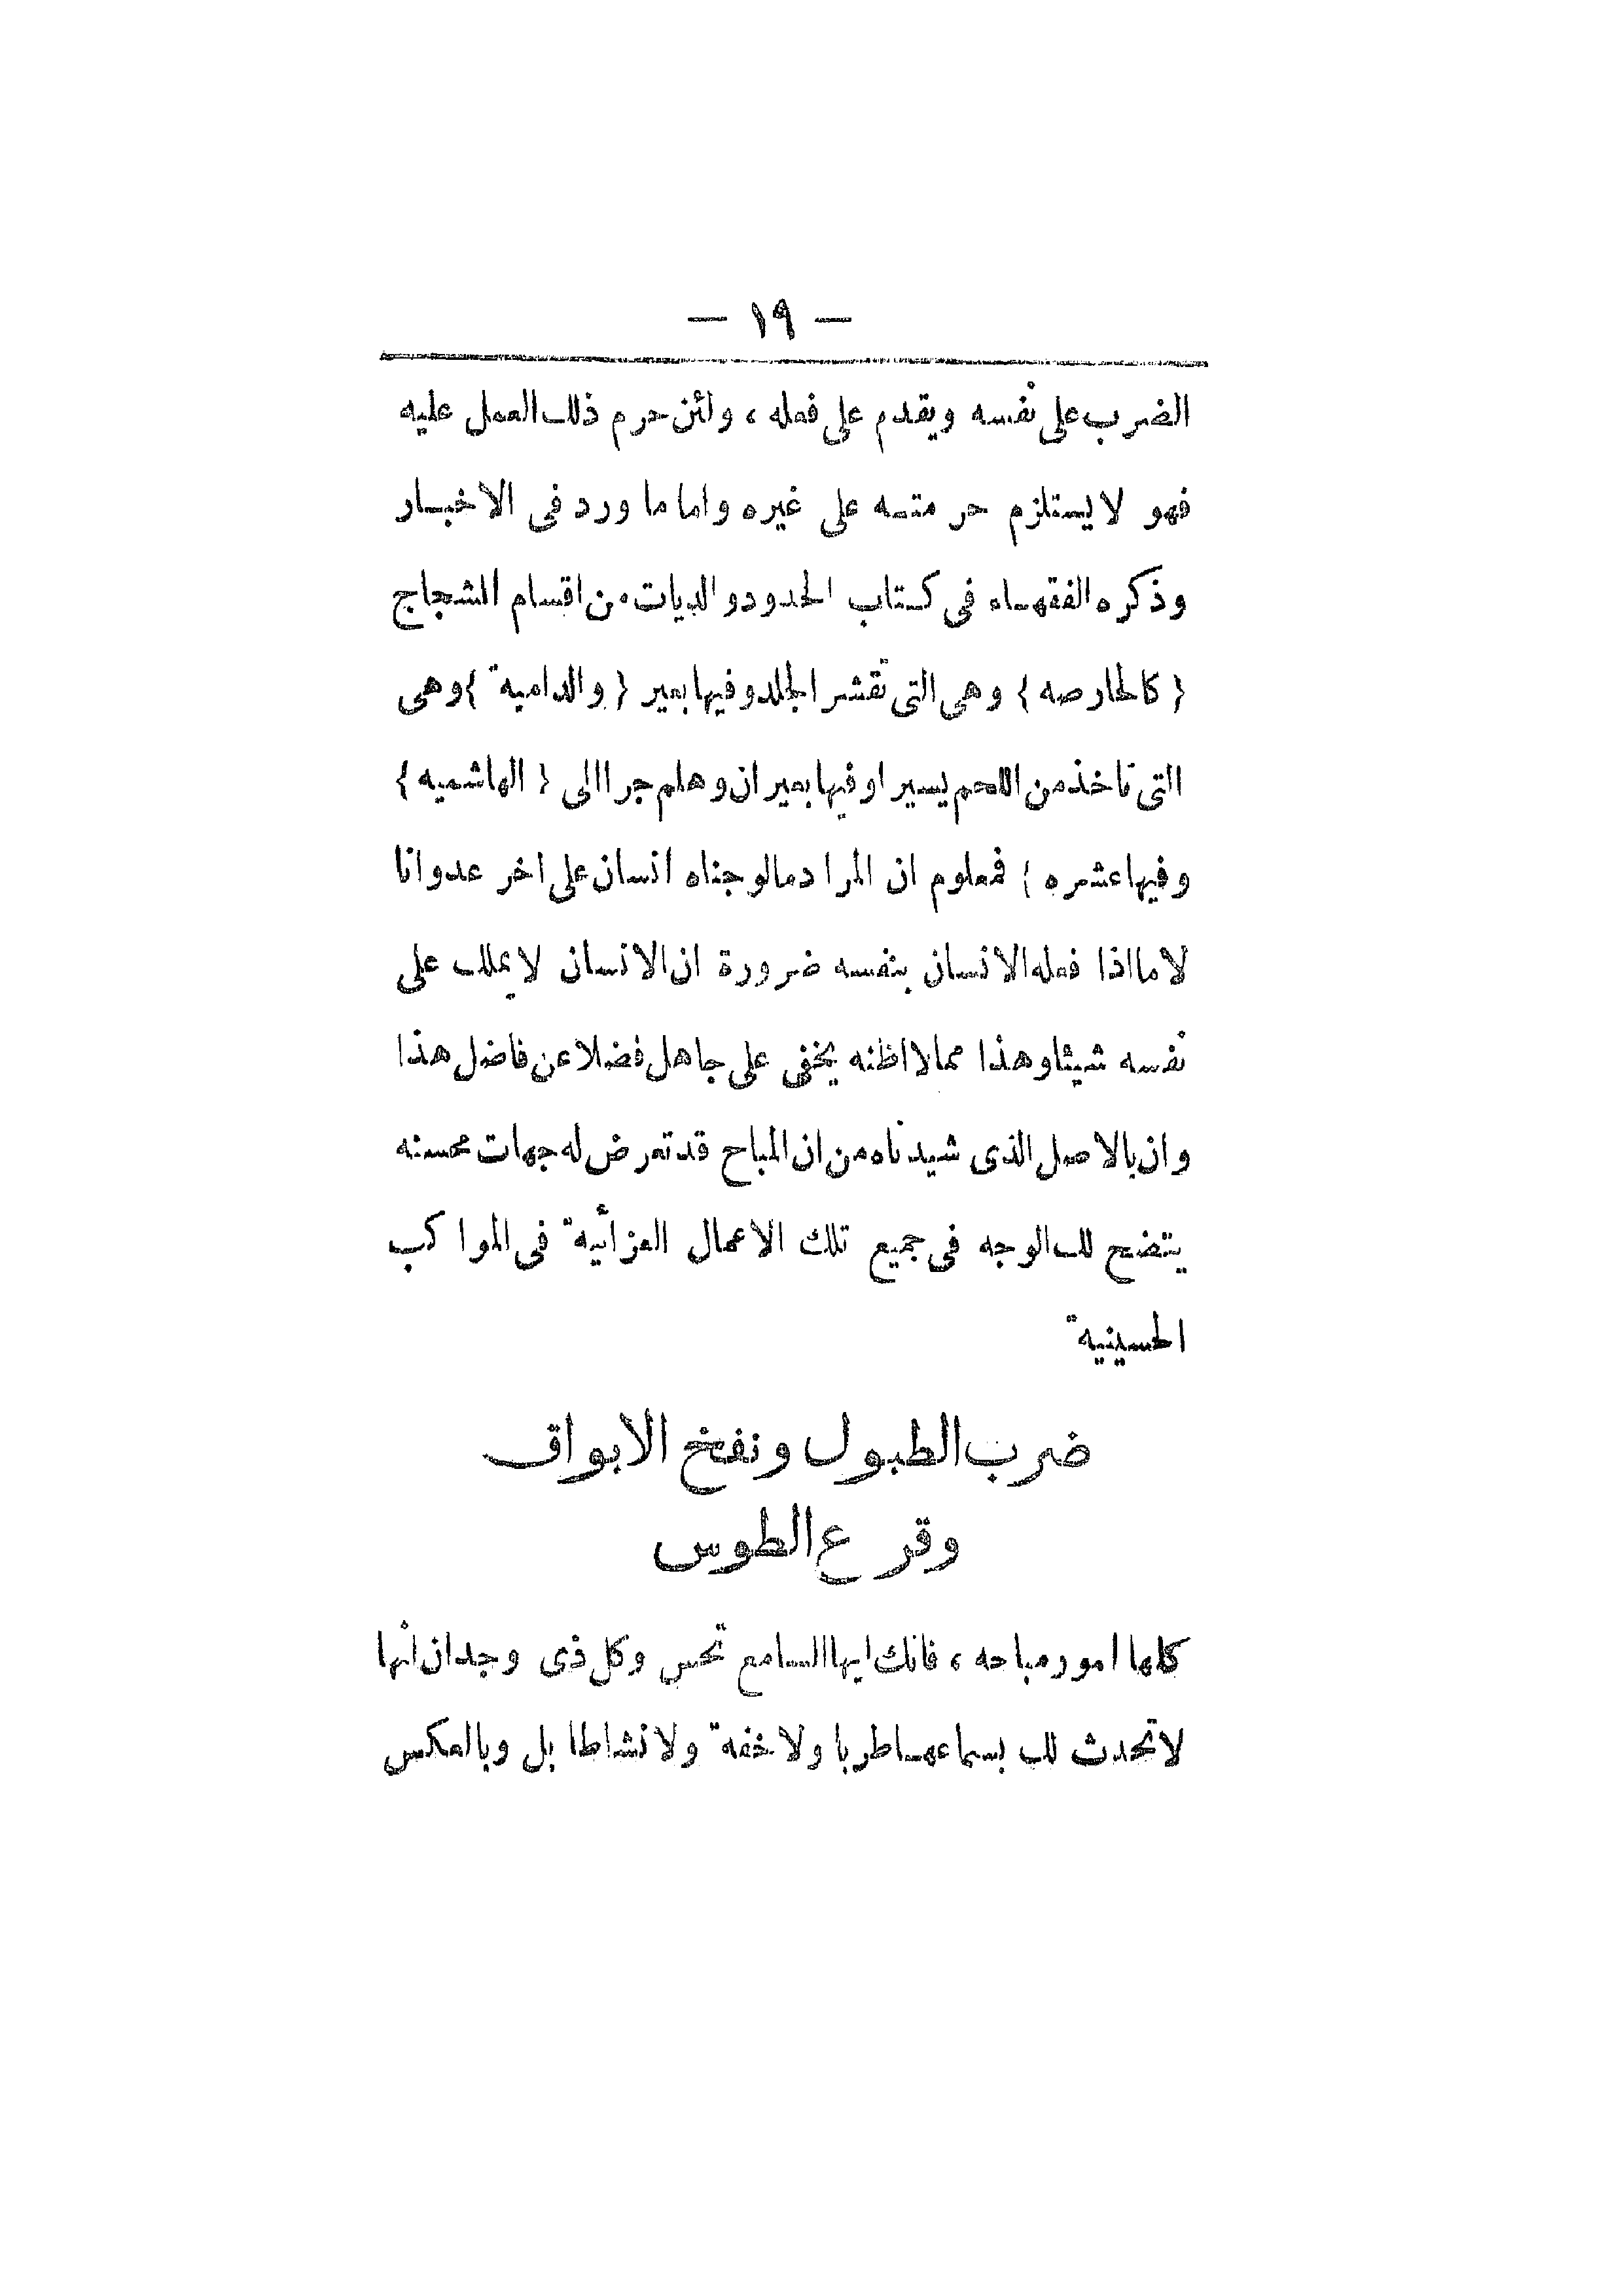 — ١٩ —
الضرب على نفسه ويقدم على فعله ، ولئن حرم ذلك العمل عليه
فهو لا يستلزم حر متـه على غيره واما ما ورد فى الاخبـار
وذكره الفقهـاء فى كـتاب الحدود والديات من اقسام الشجاج
{ كالحارصه } وهى التى تقشر الجلد وفيها بعير { والدامية } وهى
التى تاخذ من اللحم يسير او فيها بعيران وهلم جرا الى { الهاشميه }
وفيها عشره ؛ فمعلوم ان المراد مالو جناه انسان على اخر عدوانا
لا ما اذا فعله الانسان بنفسه ضرورة ان الانسان لا يملك على
نفسه شيئا وهذا مما لا اظنه يخفى على جاهل فضلا عن فاضل هذا
وان بالاصل الذى شيدناه من ان المباح قد تعرض له جهات محسنه
يتضح لك الوجه فى جميع تلك الاعمال العزائية فى المواكب
الحسينية
ضرب الطبول ونفخ الابواق
وقرع الطوس
كلها امور مباحه ، فانك ايها السامع تحس وكل ذى وجدان انها
لا تحدث لك بسماعهـا طربا ولا خفة ولا نشاطا بل وبالعكس